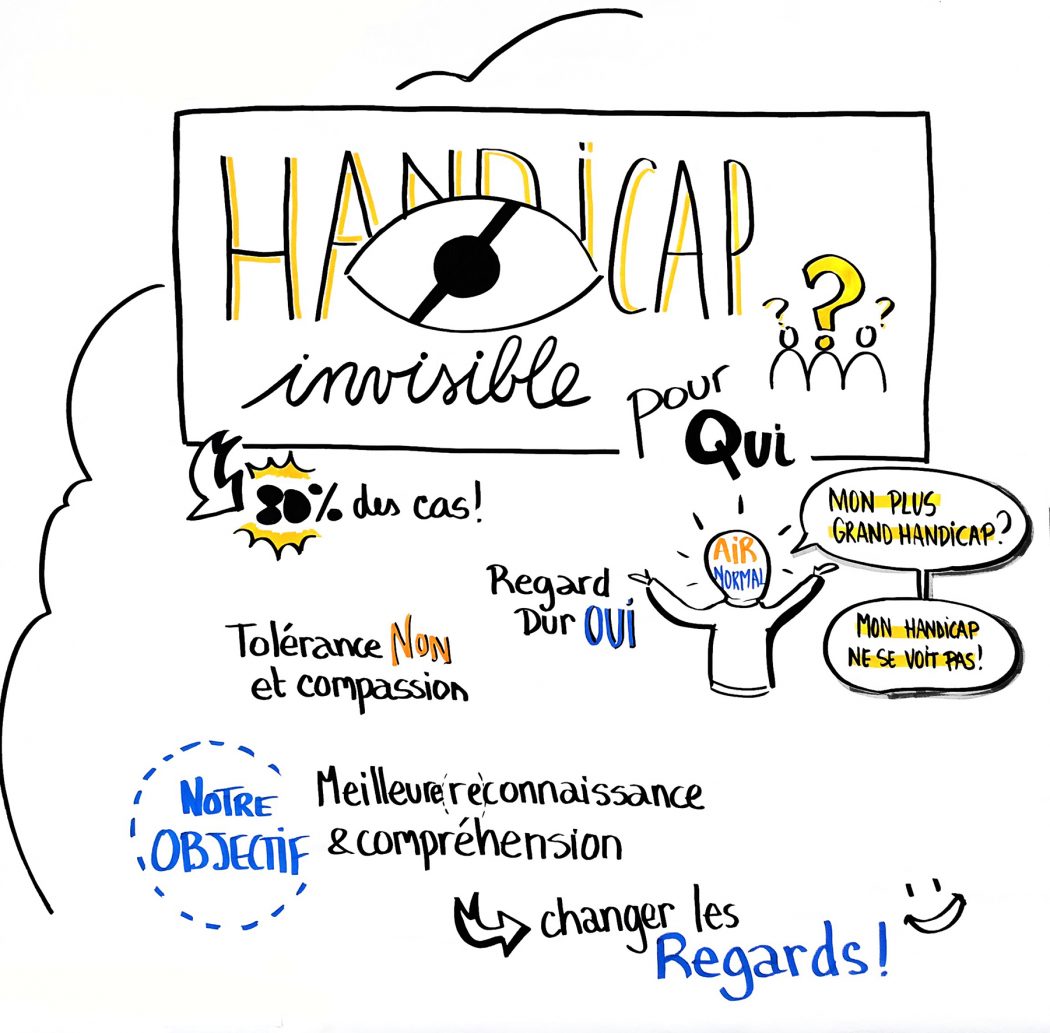 HANDiCAP
invisible
? ? ?
pour
Qui
80% des cas!
MON PLUS
GRAND HANDiCAP?
AiR
NORMAL
Regard
Dur OUi
MON HANDiCAP
NE SE VOiT PAS!
Tolérance NoN
et compassion
NOTRE
OBJECTiF
Meilleure(re)connaissance
& compréhension
changer les
Regards!